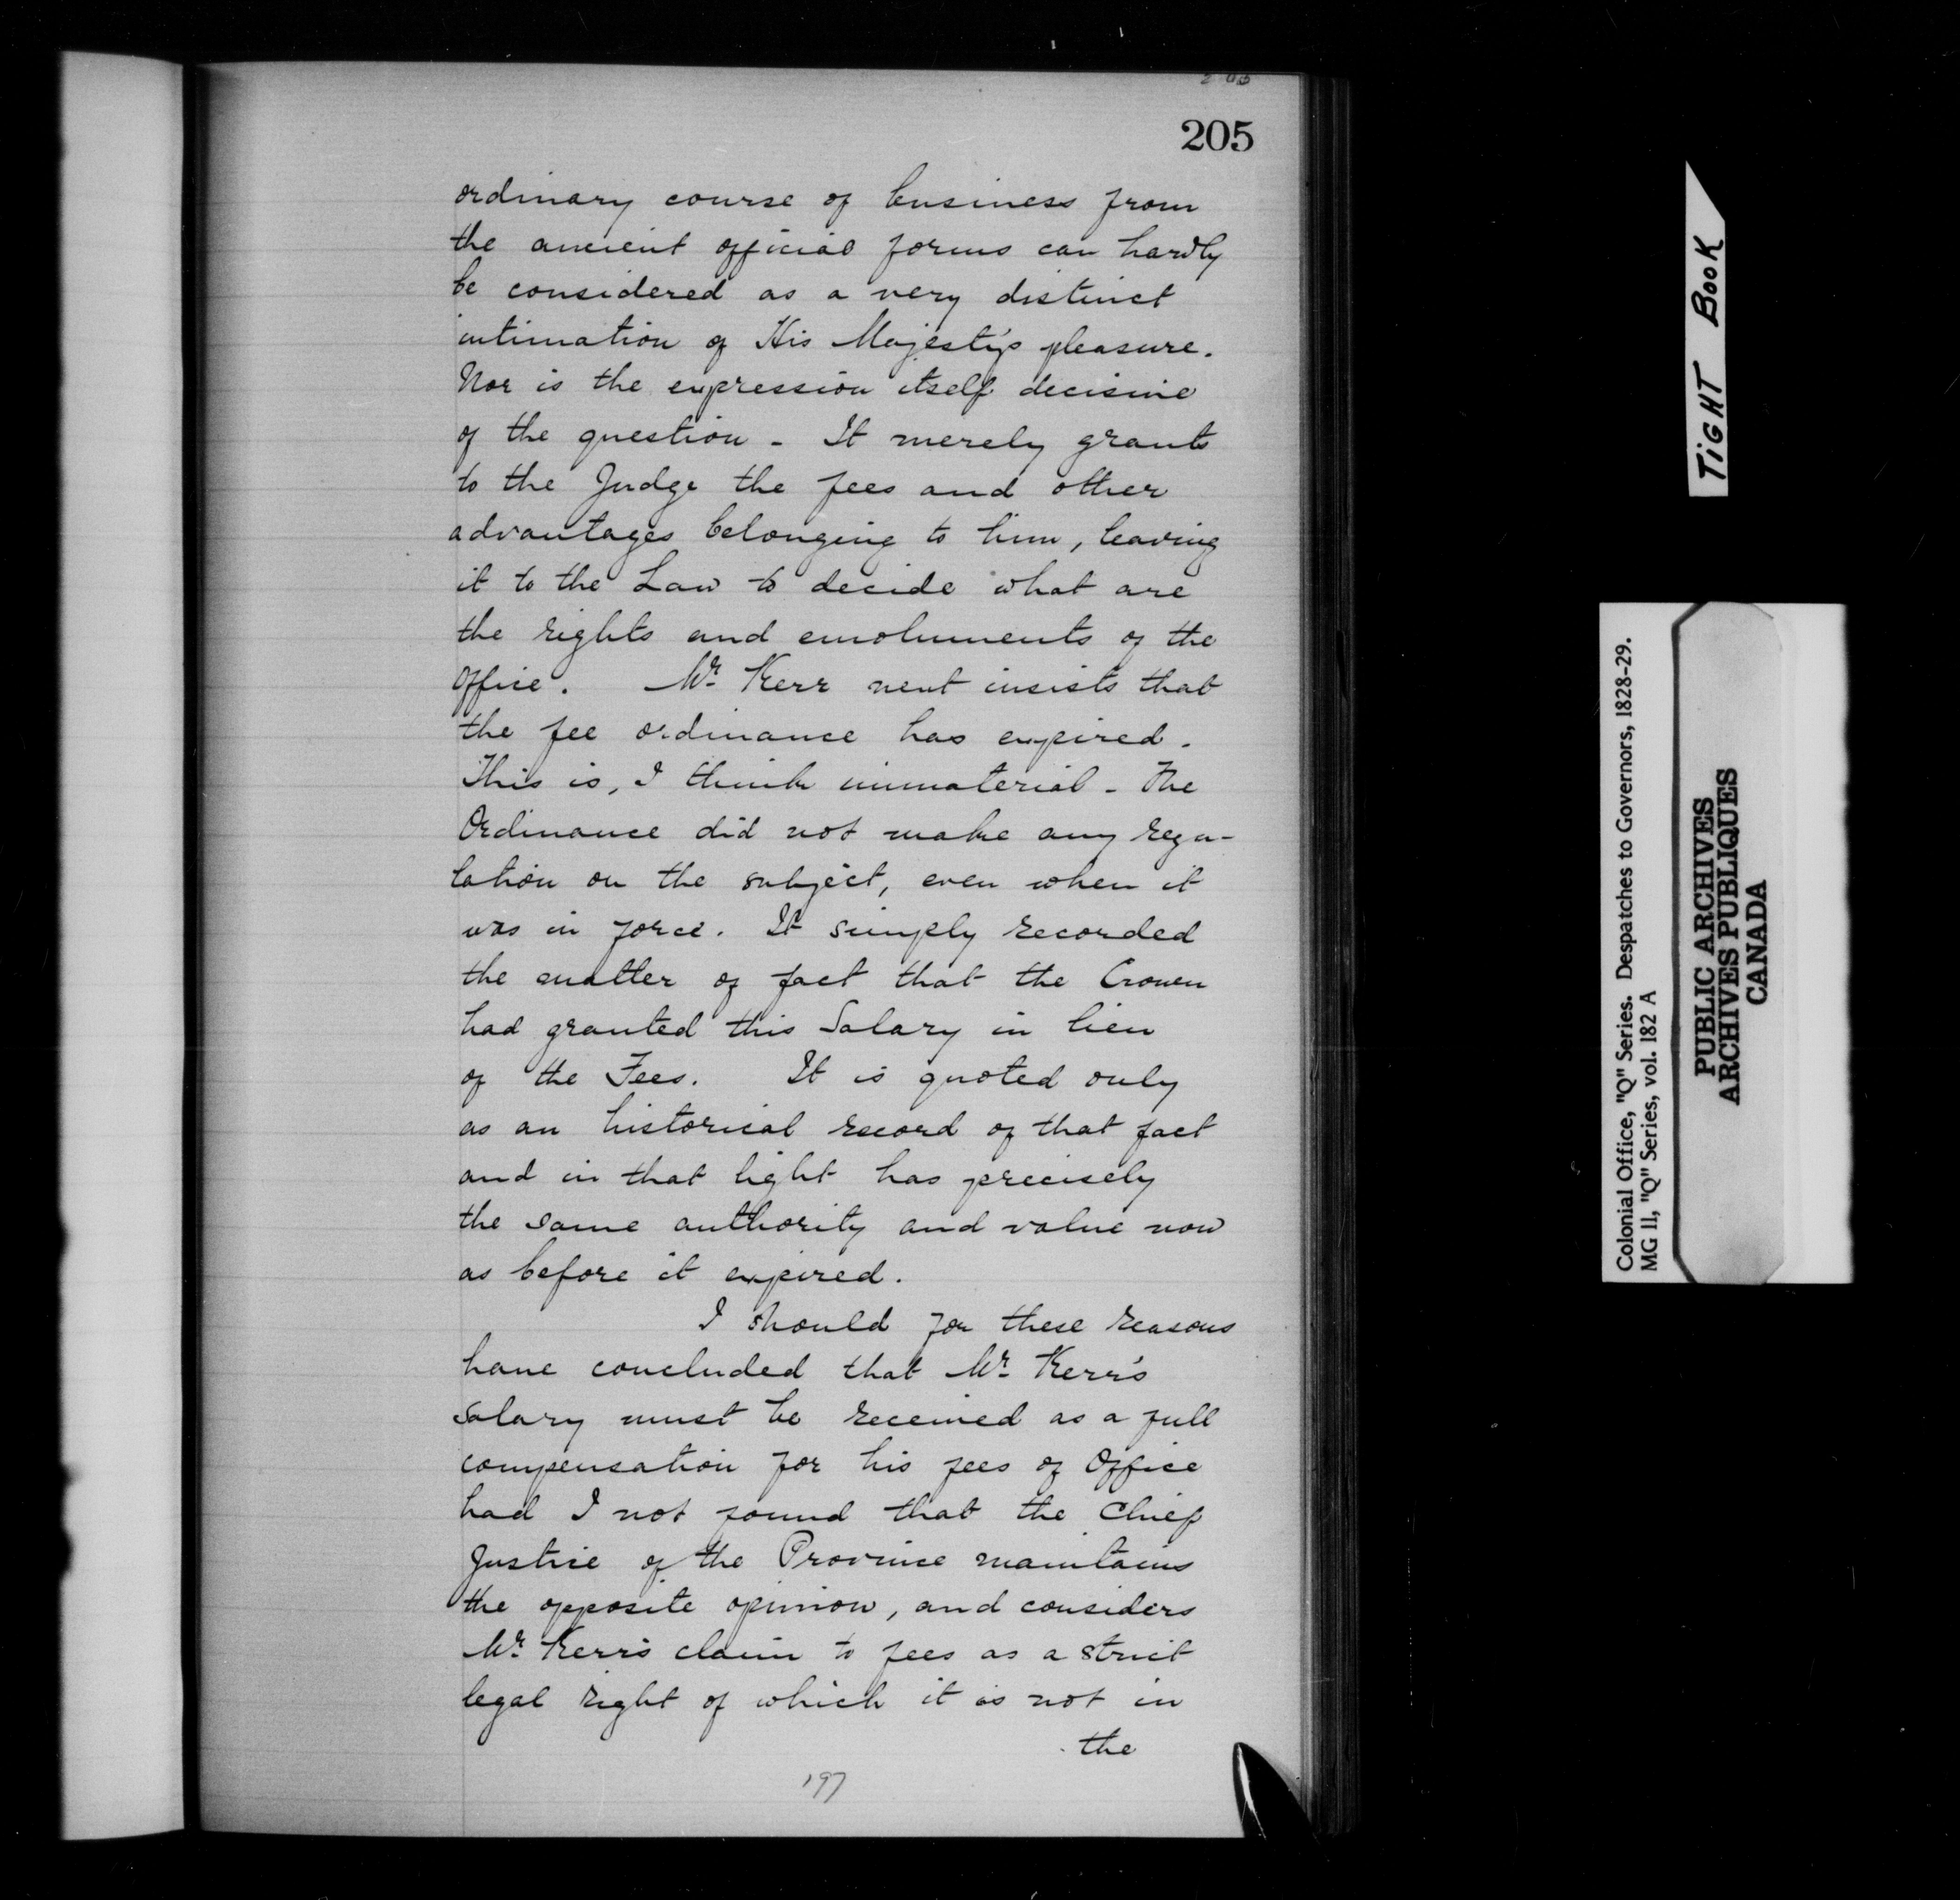 205
ordinary course of business from
the ancient official forms can hardly
be considered as a very distinct
intimation of His Majesty's pleasure.
Nor is the expression itself decisive
of the question - It merely grants
to the Judge the fees and other
advantages belonging to him, leaving
it to the Law to decide what are
the rights and emoluments of the
Office. Mr. Kerr next insists that
the fee ordinance has expired.
This is, I think immaterial - The
Ordinance did not make any regu-
lation on the subject, even when it
was in force. It simply recorded
the matter of fact that the Crown
had granted this Salary in lieu
of the Fees. It is quoted only
as an historical record of that fact
and in that light has precisely
the same authority and value now
as before it expired.
I should for these reasons
have concluded that Mr. Kerr's
Salary must be received as a full
compensation for his fees of Office
had I not found that the Chief
Justice of the Province maintains
the opposite opinion, and considers
Mr. Kerr's claim to fees as a strict
legal right of which it is not in
the
197
TIGHT BOOK
Colonial Office, "Q" Series. Despatches to Governors, 1828-29.
MG 11, "Q" Series, vol. 182 A
PUBLIC ARCHIVES
ARCHIVES PUBLIQUES
CANADA